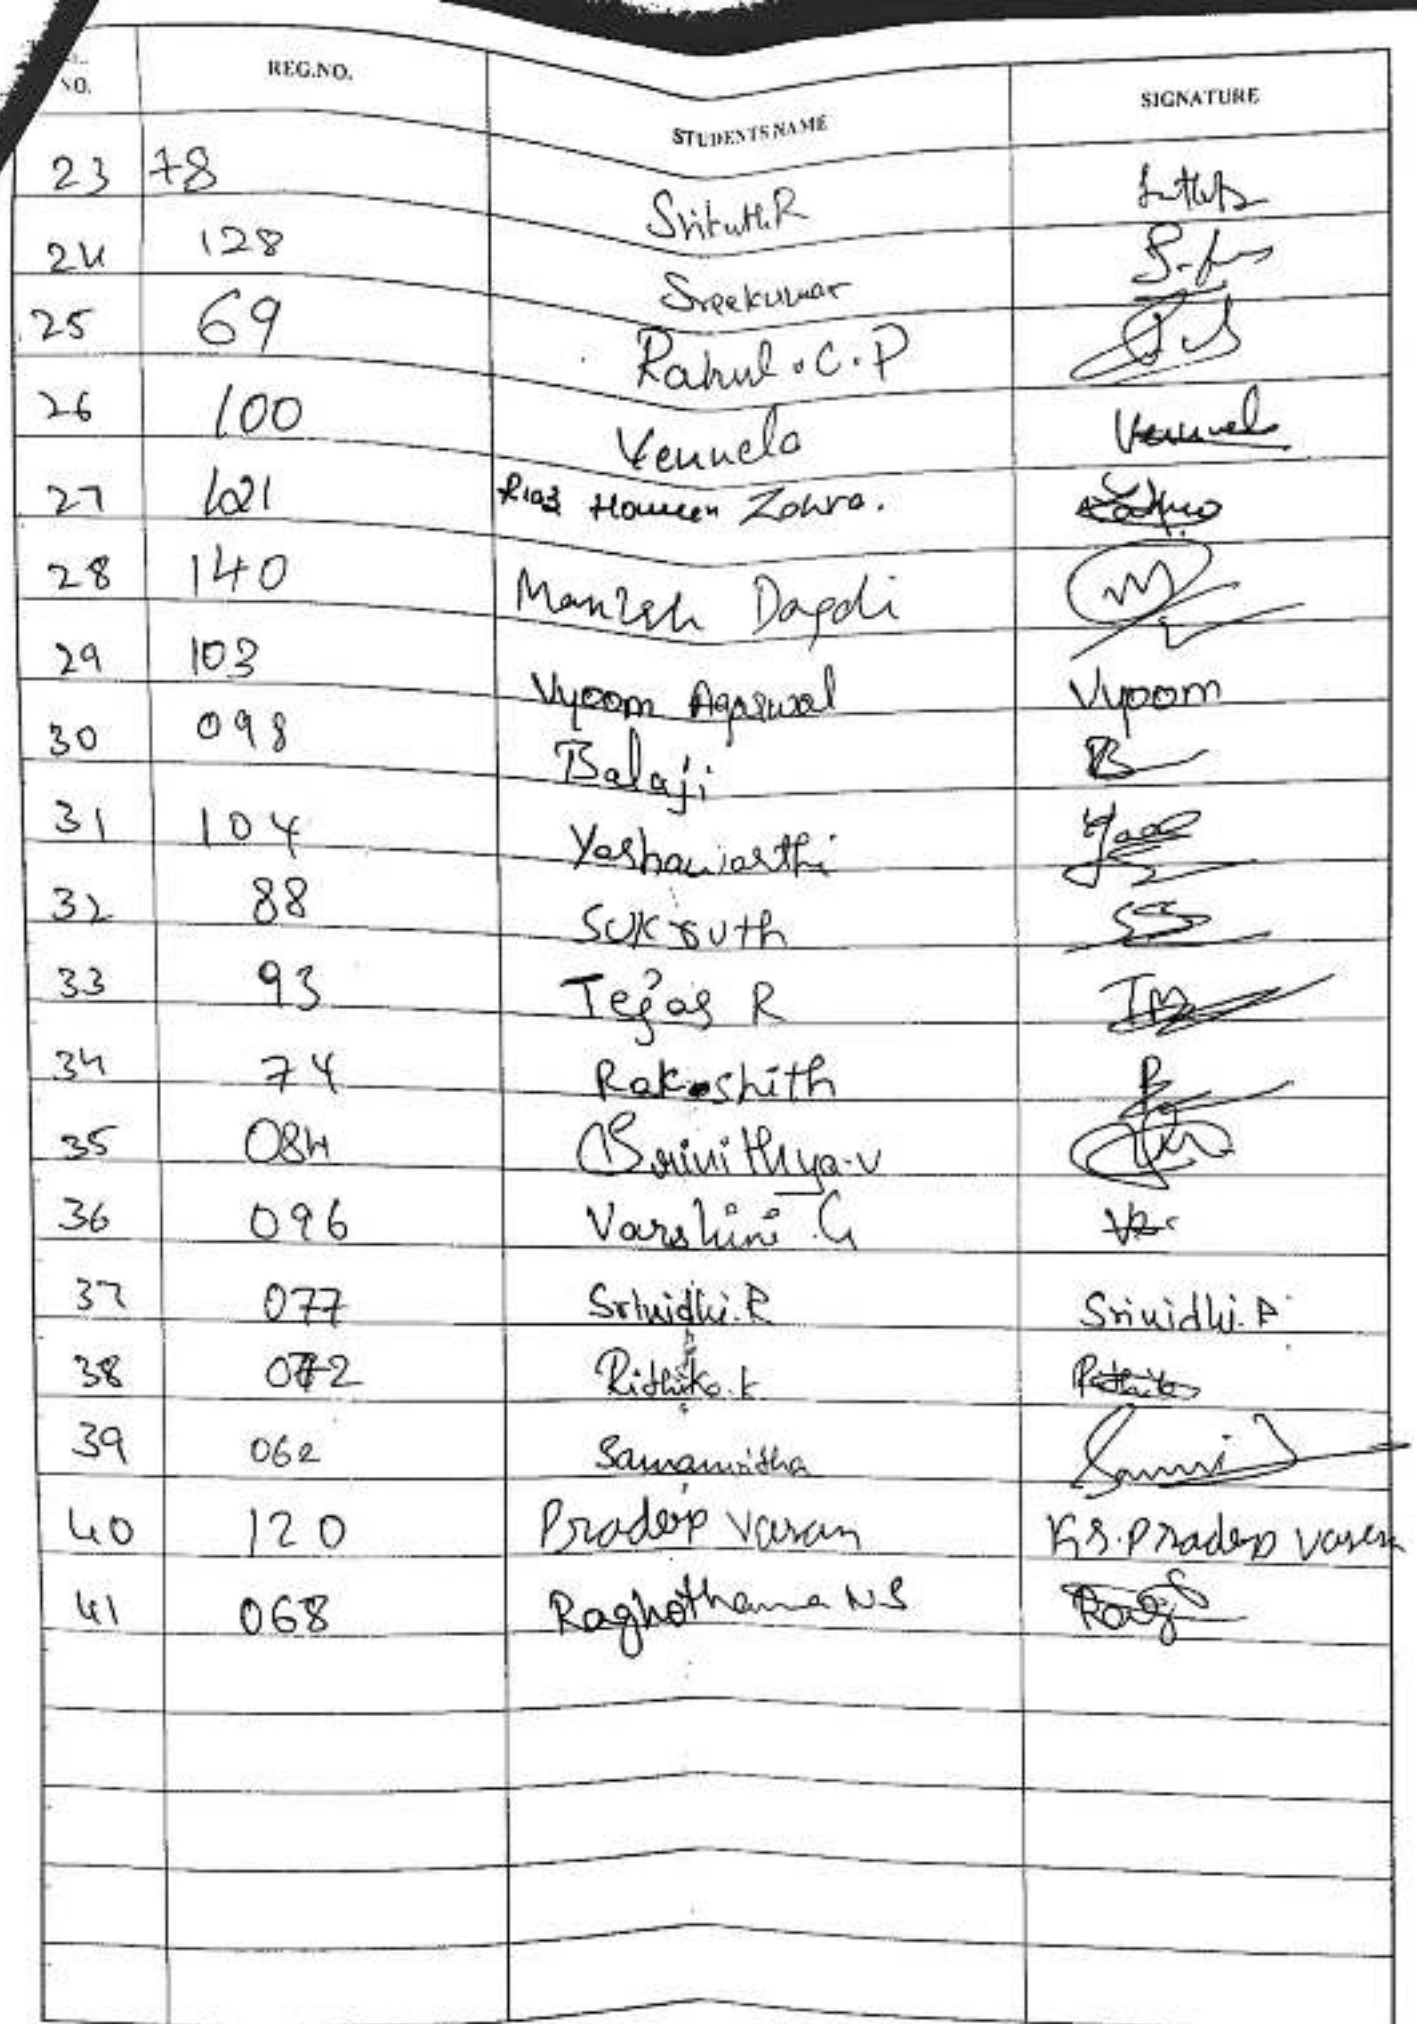 NO. REG.NO. STUDENTS NAME SIGNATURE
23 78 Srikuth.R
24 128 Sreekumar
25 69 Rahul.C.P
26 100 Vennela Vennela
27 121 Riaz Zohra.
28 140 Manish Dagdi
29 103 Vyoom Agarwal Vyoom
30 098 Balaji B
31 104
32 88 Sukruth
33 93 Tejas R
34 74 Rakshith
35 084
36 096 Varshini.G
37 077 Srinidhi.R Srinidhi.R
38 072 Rithika.k Rithika
39 062 Samanvitha
40 120 Pradeep Varan K.S.Pradeep Varan
41 068 Raghothama N S